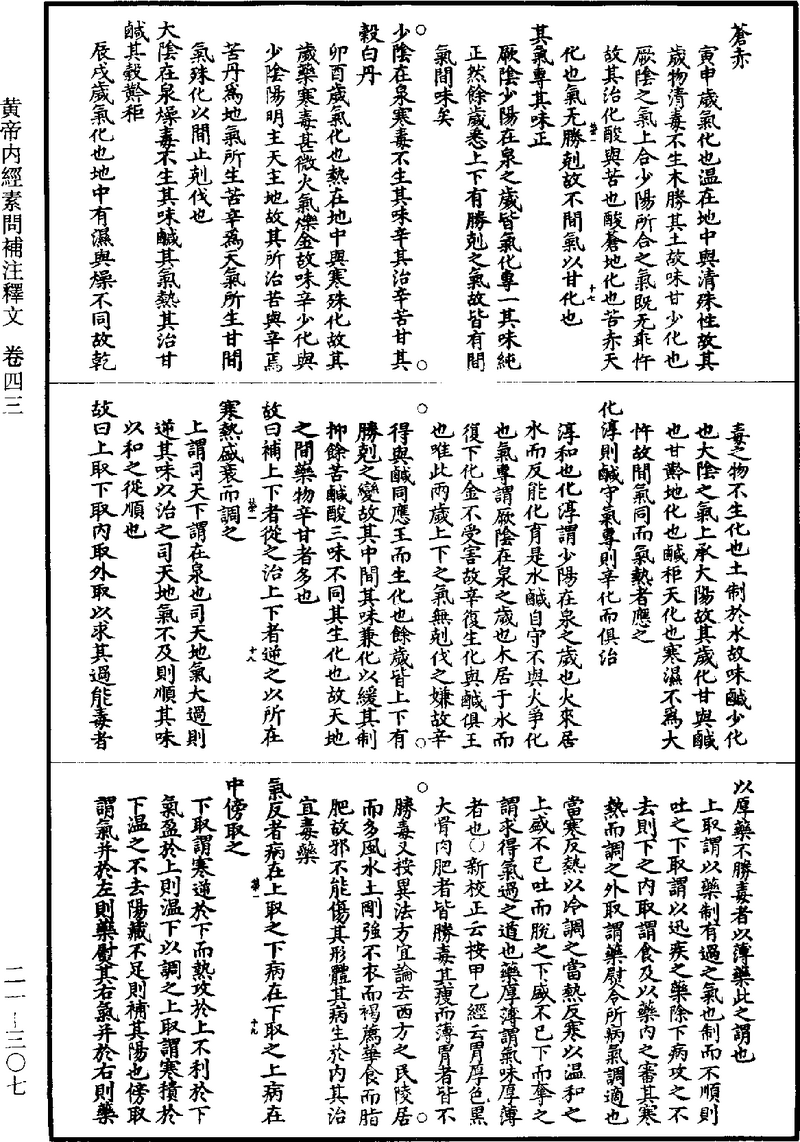 黄帝内經素問補注釋文 卷四三
二一~三〇七
蒼赤
寅申歲氣化也温在地中與清殊性故其
歲物清毒不生木勝其土故味甘少化也
厥陰之氣上合少陽所合之氣既无乖忤
故其治化酸與苦也酸蒼地化也苦赤天
化也氣无勝剋故不間氣以甘化也
其氣專其味正
厥陰少陽在泉之歲皆氣化專一其味純
正然餘歲悉上下有勝剋之氣故皆有間
氣間味矣
少陰在泉寒毒不生其味辛其治辛苦甘其
穀白丹
卯酉歲氣化也熱在地中與寒殊化故其
歲藥寒毒甚微火氣爍金故味辛少化與
少陰陽明主天主地故其所治苦與辛焉
苦丹爲地氣所生苦辛爲天氣所生甘間
氣殊化以間止剋伐也
大陰在泉燥毒不生其味鹹其氣熱其治甘
鹹其穀黅秬
辰戌歲氣化也地中有濕與燥不同故乾
毒之物不生化也土制於水故味鹹少化
也大陰之氣上承大陽故其歲化甘與鹹
也甘黅地化也鹹秬天化也寒濕不爲大
忤故間氣同而氣熱者應之
化淳則鹹守氣專則辛化而俱治
淳和也化淳謂少陽在泉之歲也火來居
水而反能化育是水鹹自守不與火争化
也氣專謂厥陰在泉之歲也木居于水而
復下化金不受害故辛復生化與鹹俱王
也唯此兩歲上下之氣無剋伐之嫌故辛
得與鹹同應王而生化也餘歲皆上下有
勝剋之變故其中間其味兼化以緩其制
抑餘苦鹹酸三味不同其生化也故天地
之間藥物辛甘者多也
故曰補上下者從之治上下者逆之以所在
寒熱盛衰而調之
上謂司天下謂在泉也司天地氣大過則
逆其味以治之司天地氣不及則順其味
以和之從順也
故曰上取下取内取外取以求其過能毒者
以厚藥不勝毒者以薄藥此之謂也
上取謂以藥制有過之氣也制而不順則
吐之下取謂以迅疾之藥除下病攻之不
去則下之内取謂食及以藥内之審其寒
熱而調之外取謂藥熨令所病氣調適也
當寒反熱以冷調之當熱反寒以温和之
上盛不已吐而脫之下盛不已下而奪之
謂求得氣過之道也藥厚薄謂氣味厚薄
者也○新校正云按甲乙經云胃厚色黑
大骨肉肥者皆勝毒其瘦而薄胃者皆不
勝毒又按異法方宜論云西方之民陵居
而多風水土剛強不衣而褐薦華食而脂
肥故邪不能傷其形體其病生於内其治
宜毒藥
氣反者病在上取之下病在下取之上病在
中傍取之
下取謂寒逆於下而熱攻於上不利於下
氣盈於上則温下以調之上取謂寒積於
下温之不去陽藏不足則補其陽也傍取
謂氣并於左則藥熨其右氣并於右則藥